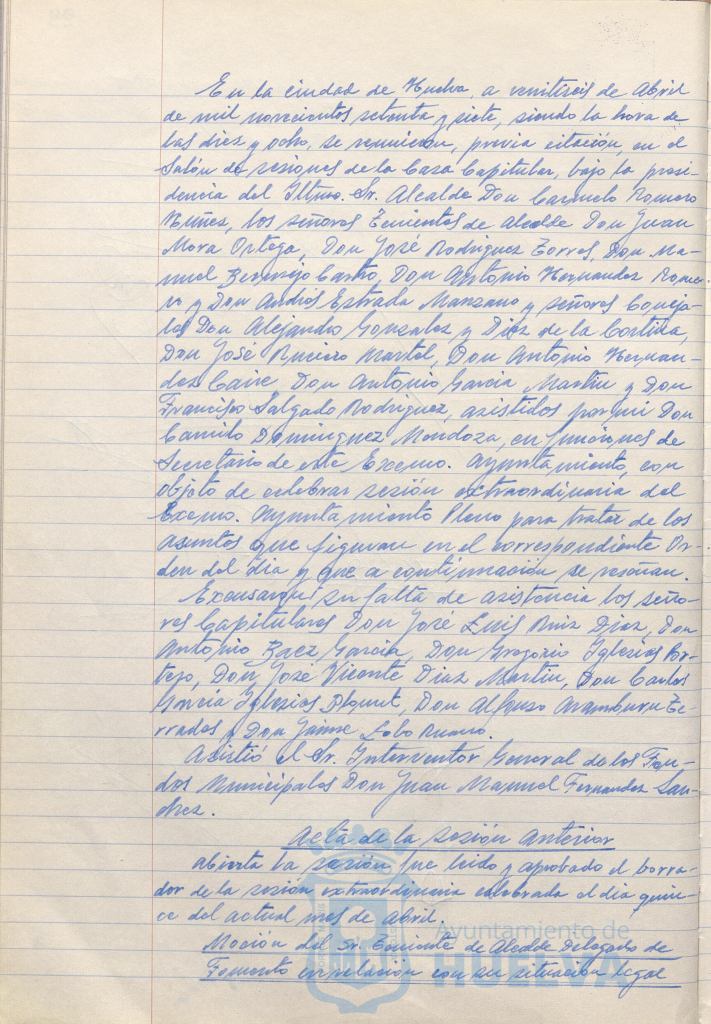 En la ciudad de Huelva, a veintiseis de Abril
de mil novecientos setenta y siete, siendo la hora de
las diez y ocho, se reunieron, previa citación, en el
Salón de sesiones de la Casa Capitular, bajo la presi-
dencia del Iltmo. Sr. Alcalde Don Carmelo Romero
Núñez, los señores Tenientes de Alcalde Don Juan
Mora Ortega, Don José Rodriguez Torres, Don Ma-
nuel Bermejo Castro, Don Antonio Hernandez Rome-
ro y Don Andrés Estrada Manzano y señores Conceja-
les Don Alejandro Gonzalez y Diaz de la Cortina,
Don José Ruciero Martel, Don Antonio Hernan-
dez Caire, Don Antonio Garcia Martin y Don
Francisco Salgado Rodriguez, asistidos por mi Don
Camilo Dominguez Mendoza, en funciones de
Secretario de este Excmo. Ayuntamiento, con
objeto de celebrar sesión extraordinaria del
Excmo. Ayuntamiento Pleno para tratar de los
asuntos que figuran en el correspondiente Or-
den del dia y que a continuación se reseñan.
Excusaron su falta de asistencia los seño-
res Capitulares Don José Luis Ruiz Diaz, Don
Antonio Baez Garcia, Don Gregorio Iglesias
Don José Vicente Diaz Martin, Don Carlos
Garcia Iglesias Don Alfonso Aramburu Te-
rrades y Don Jaime Lobo
Asistió el Sr. Interventor General de los Fon-
dos Municipales Don Juan Manuel Fernandez San-
chez.
Acta de la sesión anterior
Abierta la sesión fue leido y aprobado el borra-
dor de la sesión extraordinaria celebrada el dia quin-
ce del actual mes de Abril.
Moción del Sr. Teniente de Alcalde Delegado de
Fomento en relación con su situación legal
Ayuntamiento de
HUELVA